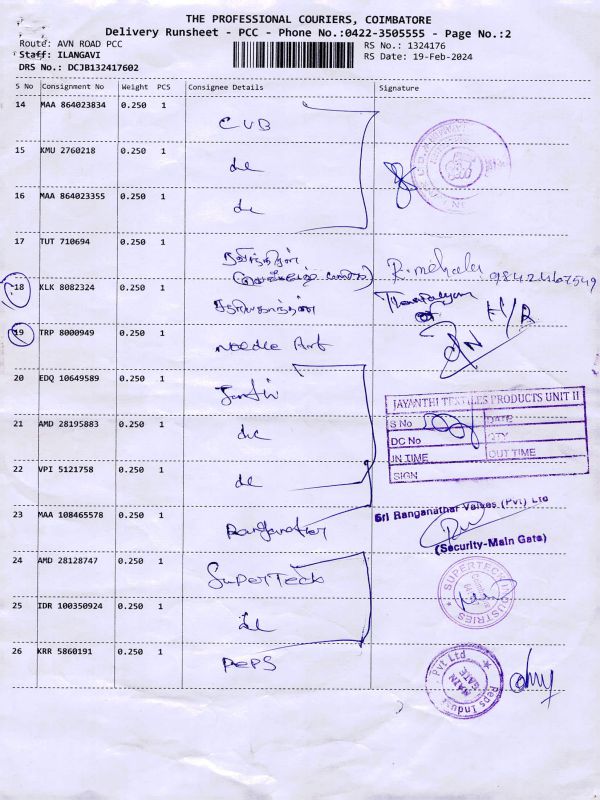 THE PROFESSIONAL COURIERS, COIMBATORE
Delivery Runsheet - PCC - Phone No.:0422-3505555 - Page No.:2
Route: AVN ROAD PCC
RS No.: 1324176
Staff: ILANGAVI
RS Date: 19-Feb-2024
DRS No.: DCJB132417602
S No Consignment No Weight PCS Consignee Details Signature
14 MAA 864023834 0.250 1
CUB
15 KMU 2760218 0.250 1
do
16 MAA 864023355 0.250 1
do
17 TUT 710694 0.250 1
R. mehala 9842467549
18 KLK 8082324 0.250 1
H/R
19 TRP 8000949 0.250 1
Needle Art
20 EDQ 10649589 0.250 1
JAYANTHI TEXTILES PRODUCTS UNIT II
21 AMD 28195883 0.250 1
do
S No DATE
DC No QTY
IN TIME OUT TIME
SIGN
22 VPI 5121758 0.250 1
do
23 MAA 108465578 0.250 1
Ranganather
Sri Ranganathar Valves (Pvt) Ltd
(Security-Main Gate)
24 AMD 28128747 0.250 1
SuperTech
SUPERTECH INDUSTRIES
25 IDR 100350924 0.250 1
do
26 KRR 5860191 0.250 1
PEPS
Peps Indust Pvt Ltd
MAIN GATE